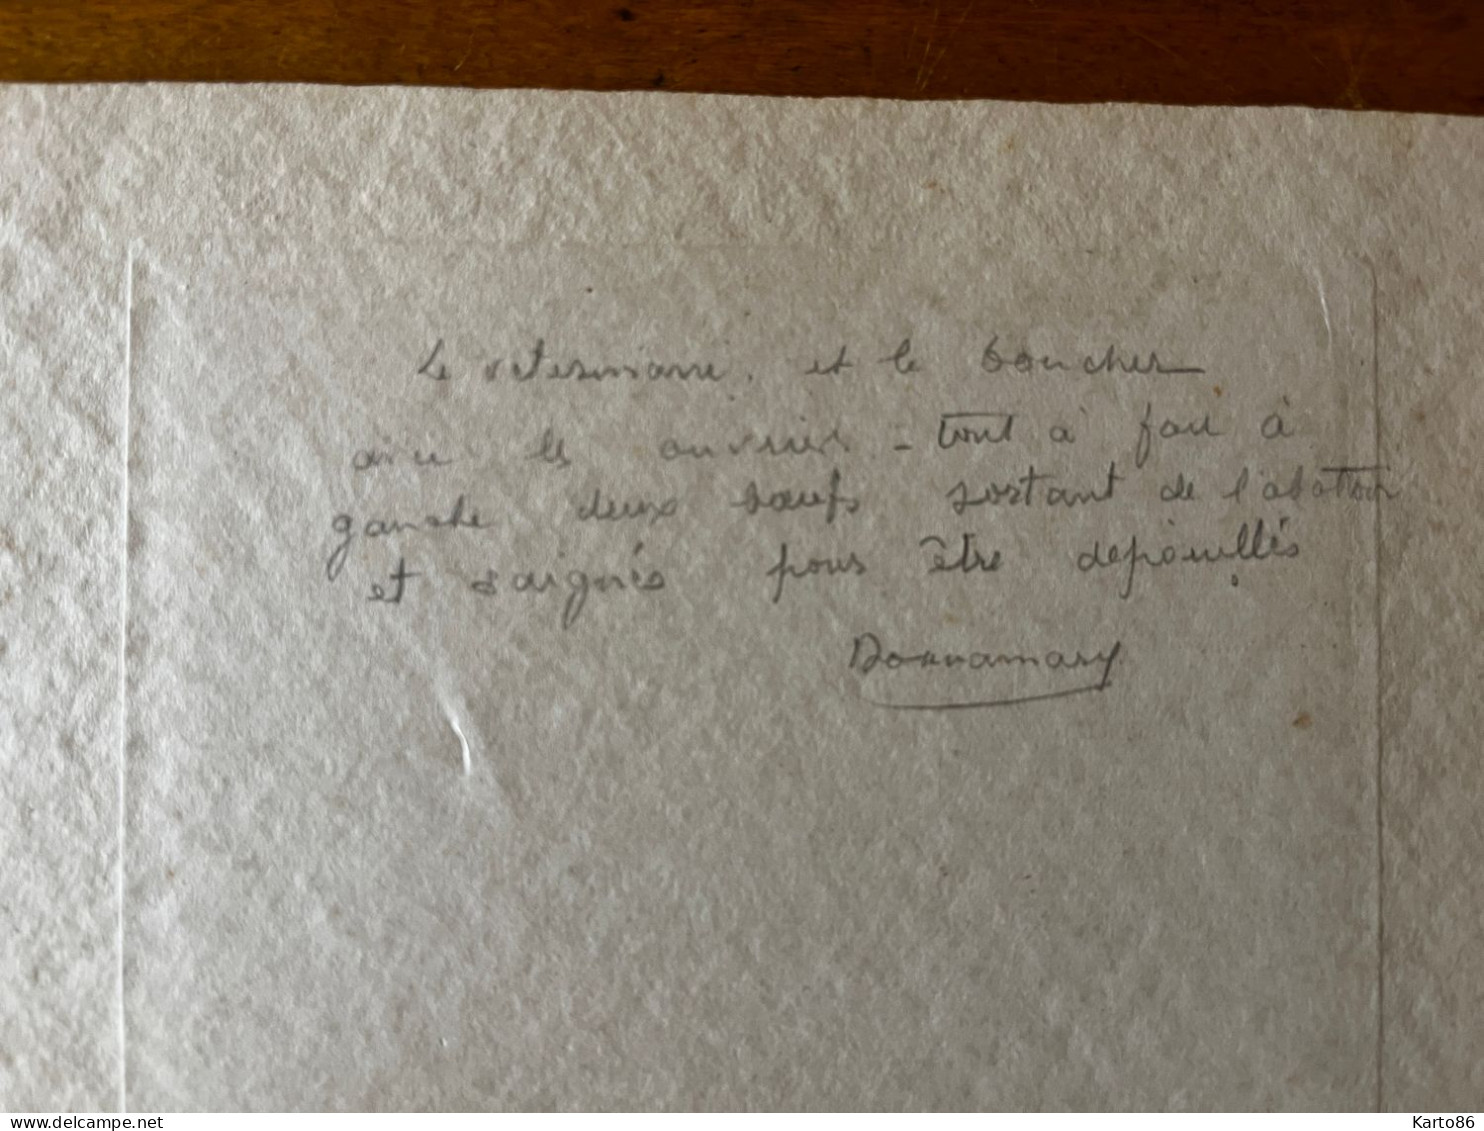 Le veterinaire. et le boucher
avec les ouvriers - tout à fait à
gauche deux bœufs sortant de l'abattoir
et saignés pour être depouillés
Bonnamary
www.delcampe.net
Karto86